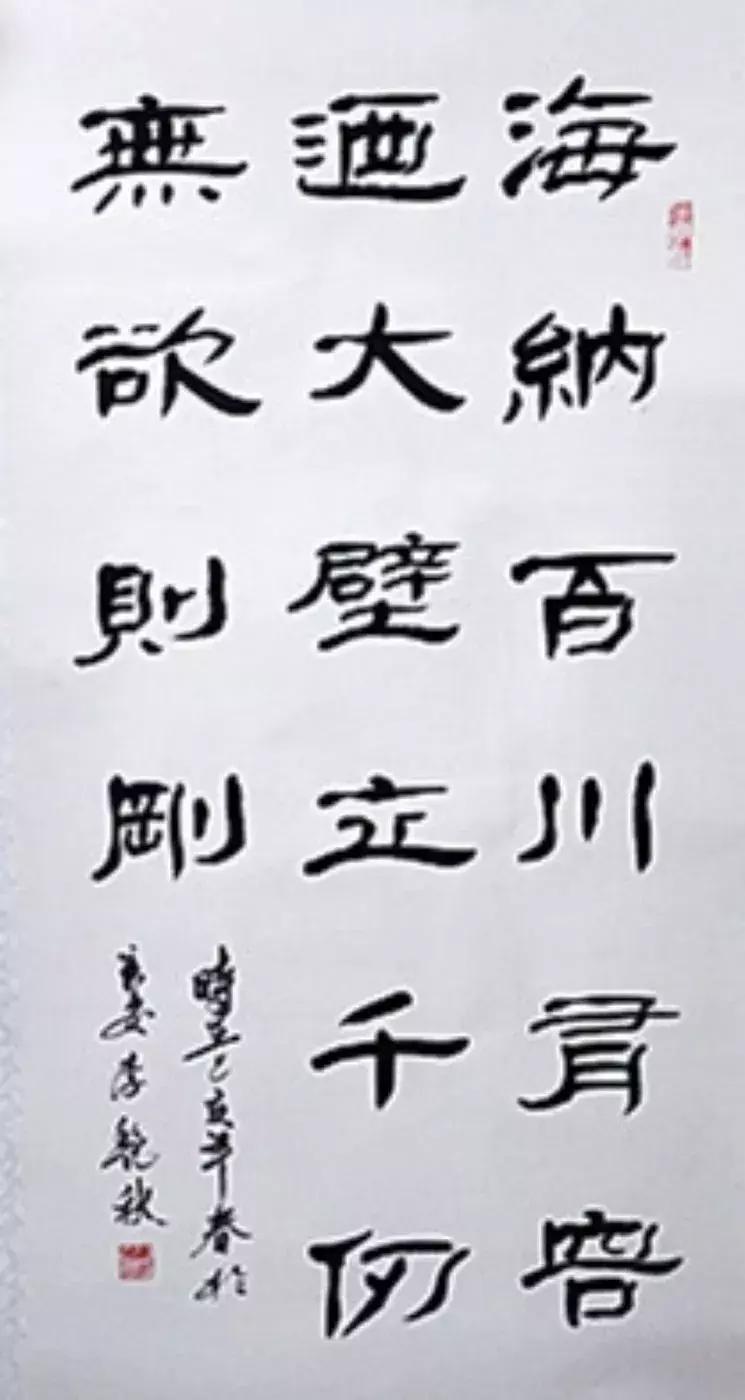 海納百川有容
迺大壁立千仞
無欲則剛
時在己亥年春於
長安李秋